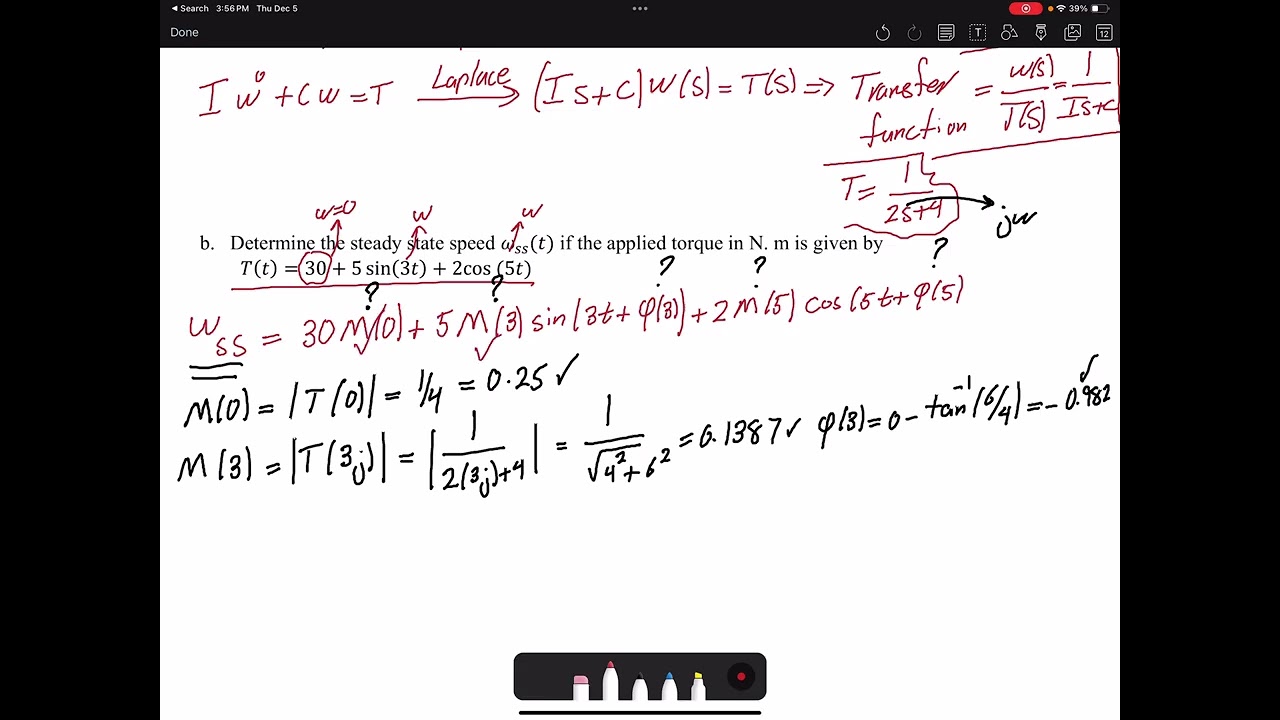 Search 3:56 PM Thu Dec 5 39%
Done
I ẇ + cw = T Laplace (Is+c) w(s) = T(s) ⇒ Transfer function = w(s)/T(s) = 1/Is+c
T = 1/2s+4
jw
w=0 w w
b. Determine the steady state speed ω_ss(t) if the applied torque in N. m is given by
T(t) = 30 + 5 sin(3t) + 2cos (5t)
? ? ? ? ?
w_ss = 30 M(0) + 5 M(3) sin(3t + φ(3)) + 2 M(5) cos(5t + φ(5)
M(0) = |T(0)| = 1/4 = 0.25 ✓
M(3) = |T(3j)| = |1/2(3j)+4| = 1/√4²+6² = 0.1387 ✓ φ(3) = 0 - tan⁻¹(6/4) = - 0.982 ✓